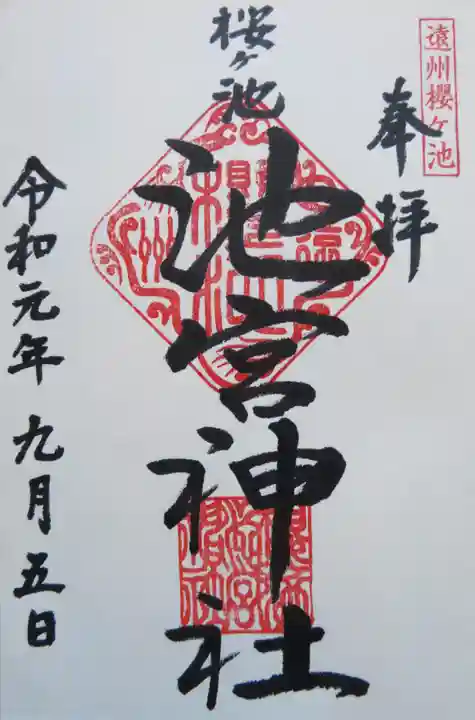 遠州櫻ケ池
奉拝
桜ヶ池
池宮神社
令和元年九月五日